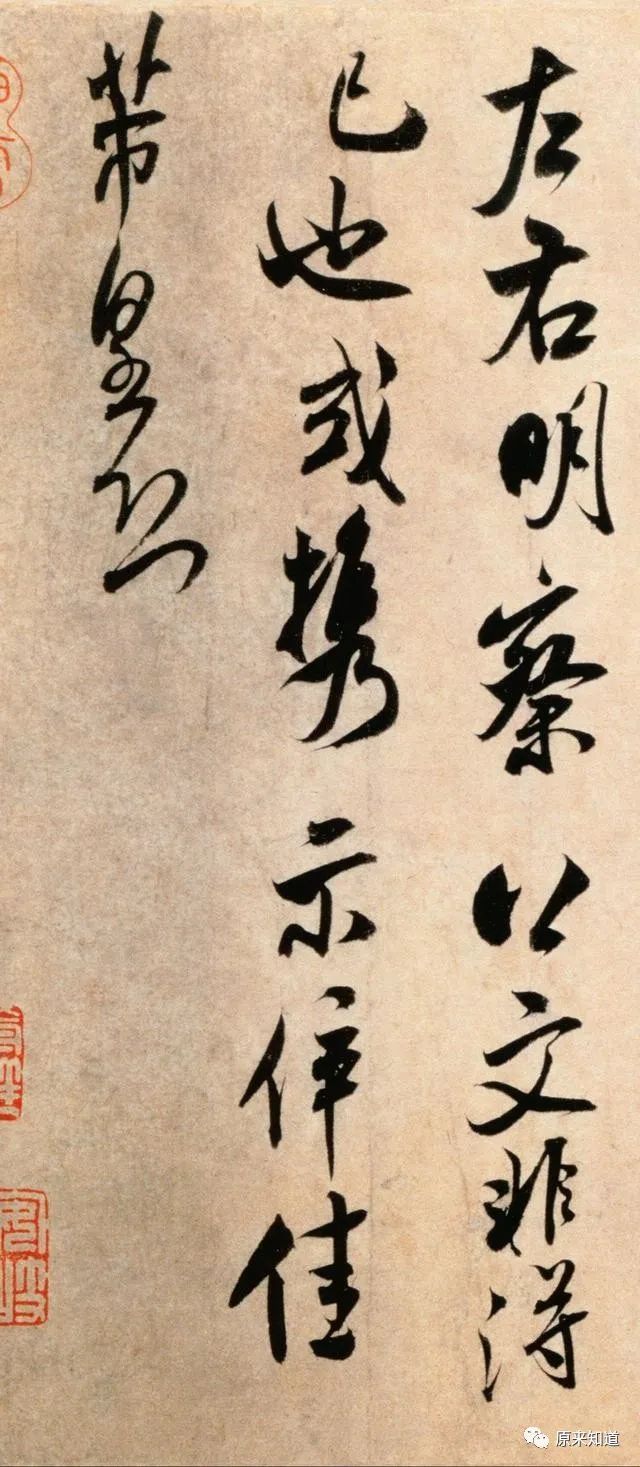 左右明察公文非得
已也或携示倅佳
芾皇恐
原来知道